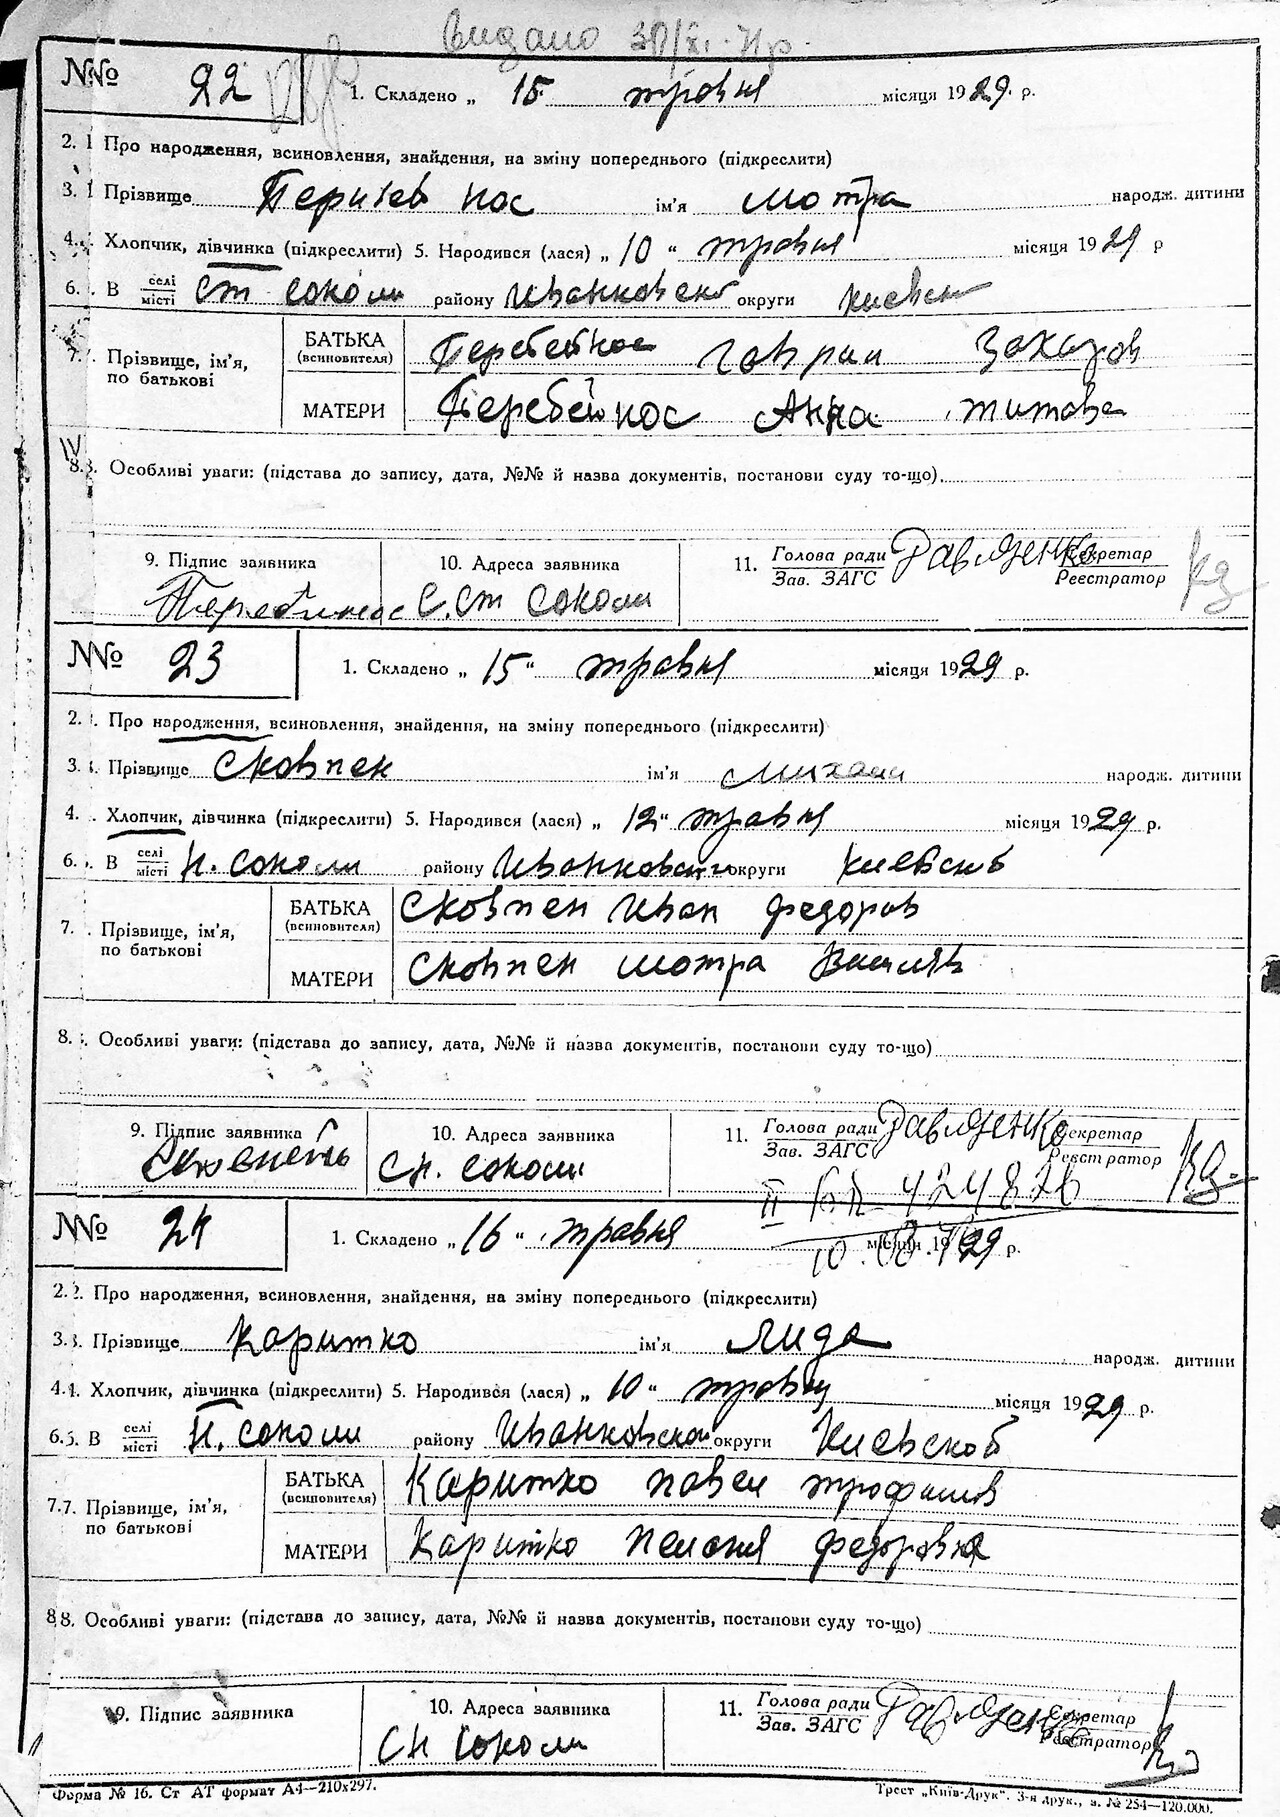 Видано 30/XI.
№№ 22
1. Складено „ 15 травня місяця 1929. р.
2. Про народження, всиновлення, знайдення, на зміну попереднього (підкреслити)
3. Прізвище нос ім'я Мотра народж. дитини
4. Хлопчик, дівчинка (підкреслити) 5. Народився (лася) „ 10 " травня місяця 1929 р
6. В селі місті Ст соколи району округи
7. Прізвище, ім'я, по батькові
БАТЬКА (всиновителя) Перебейнос Гаврил Захаров
МАТЕРИ Перебейнос Анна Титова
8. Особливі уваги: (підстава до запису, дата, №№ й назва документів, постанови суду то-що)
9. Підпис заявника 10. Адреса заявника 11. Голова ради Зав. ЗАГС Секретар Реестратор
С. Ст соколи
№№ 23
1. Складено „ 15 " травня місяця 1929 р.
2. Про народження, всиновлення, знайдення, на зміну попереднього (підкреслити)
3. Прізвище Сковпен ім'я Михаил народж. дитини
4. Хлопчик, дівчинка (підкреслити) 5. Народився (лася) „ 12 " травня місяця 1929 р.
6. В селі місті Н. соколи району округи
7. Прізвище, ім'я, по батькові
БАТЬКА (всиновителя) Сковпен Иван Федоров
МАТЕРИ Сковпен Мотра
8. Особливі уваги: (підстава до запису, дата, №№ й назва документів, постанови суду то-що)
9. Підпис заявника 10. Адреса заявника 11. Голова ради Зав. ЗАГС Секретар Реестратор
С Н. соколи
№№ 24
1. Складено „ 16 " травня місяця 1929 р.
2. Про народження, всиновлення, знайдення, на зміну попереднього (підкреслити)
3. Прізвище Каритко ім'я Лида народж. дитини
4. Хлопчик, дівчинка (підкреслити) 5. Народився (лася) „ 10 " травня місяця 1929 р.
6. В селі місті Н. соколи району Иванковской округи Киевской
7. Прізвище, ім'я, по батькові
БАТЬКА (всиновителя) Каритко Павел Трофимов
МАТЕРИ Каритко Пелагия Федоровна
8. Особливі уваги: (підстава до запису, дата, №№ й назва документів, постанови суду то-що)
9. Підпис заявника 10. Адреса заявника 11. Голова ради Зав. ЗАГС Секретар Реестратор
С Н соколи
Форма № 16. Ст АТ формат А4—210х297. Трест „Київ-Друк". 3-я друк., з. № 254—120.000.